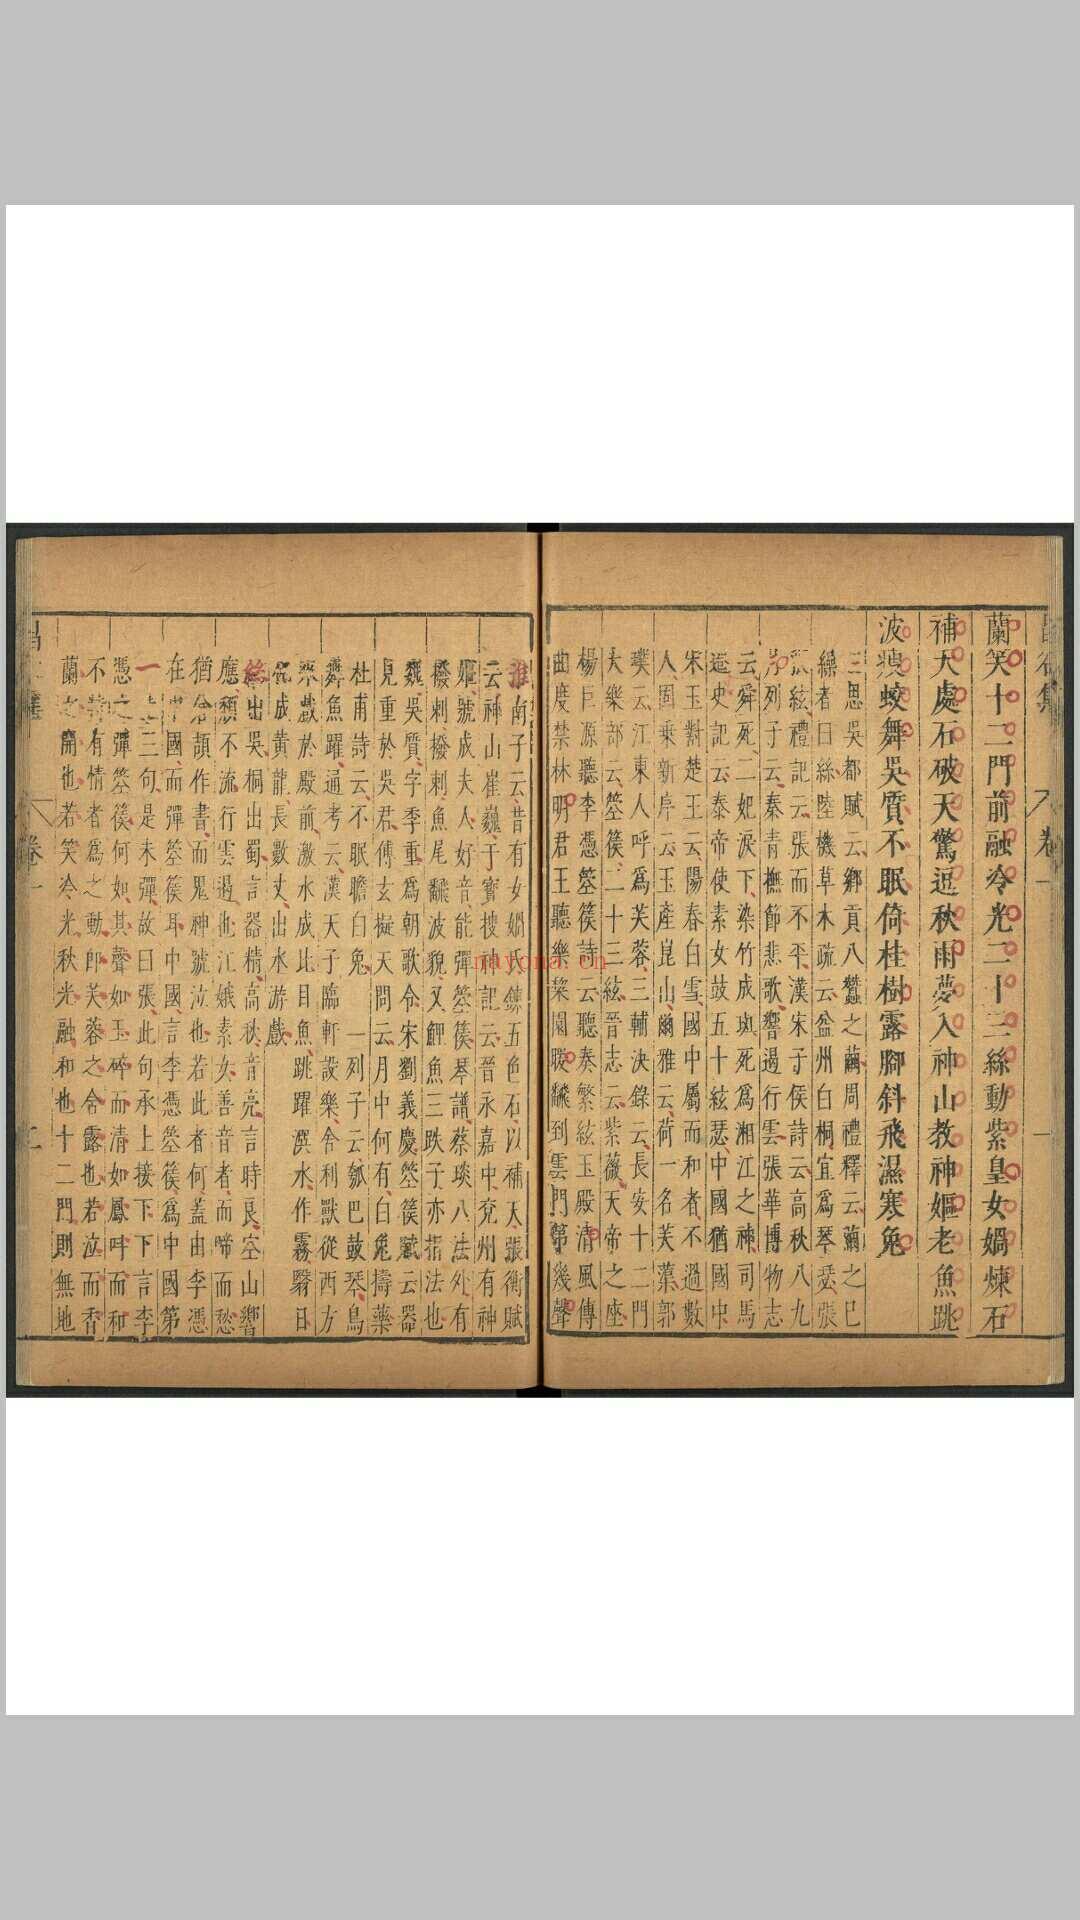 昌谷集
卷一
一
蘭笑十二門前融冷光二十三絲動紫皇女媧煉石
補天處石破天驚逗秋雨夢入神山教神嫗老魚跳
波瘦蛟舞吳質不眠倚桂樹露腳斜飛濕寒兔
三思吳都賦云鄉貢八蠶之繭周禮釋云繭之已
繰者曰絲陸機草木疏云盆州白桐宜爲琴瑟張
弧絃禮記云張而不平漢宋子侯詩云高秋八九
月列子云秦青撫節悲歌響遏行雲張華博物志
云舜死二妃淚下染竹成斑死爲湘江之神司馬
遷史記云泰帝使素女鼓五十絃瑟中國猶國中
宋玉對楚王云陽春白雪國中屬而和者不過數
人固乘新序云玉產崑山爾雅云荷一名芙蕖郭
璞云江東人呼爲芙蓉三輔決錄云長安十二門
大樂部云箜篌二十三絃晉志云紫薇天帝之座
楊巨源聽李憑箜篌詩云聽奏繁絃玉殿清風傳
曲度禁林明君王聽樂梨園暖飜到雲門第幾聲
淮南子云昔有女媧氏鍊五色石以補天張衡賦
云神山崔巍于寶搜神記云晉永嘉中兗州有神
嫗號成夫人好音能彈箜篌琴譜蔡琰八法外有
撥刺撥刺魚尾飜波貌又鯉魚三跌子亦指法也
魏吳質字季重爲朝歌令宋劉義慶箜篌賦云器
見重於吳君傅玄擬天問云月中何有白兔擣藥
杜甫詩云不眠瞻白兔 一列子云瓠巴鼓琴鳥
舞魚躍通考云漢天子臨軒設樂舍利獸從西方
來戲於殿前激水成比目魚跳躍潠水作霧翳日
化成黃龍長數丈出水游戲
絲出吳桐出蜀言器精高秋音亮言時良空山響
應頹不流行雲遏也江娥素女善音者而啼而愁
猶倉頡作書而鬼神號泣也若此者何蓋由李憑
在中國而彈箜篌耳中國言李憑箜篌爲中國第
一 三句是未彈故曰張此句承上接下下言李
憑之彈箜篌何如其聲如玉碎而清如鳳吽而和
不特有情者爲之動即芙蓉之含露也若泣而香
蘭之開也若笑冷光秋光融和也十二門則無地
卷一
二
nayona.cn